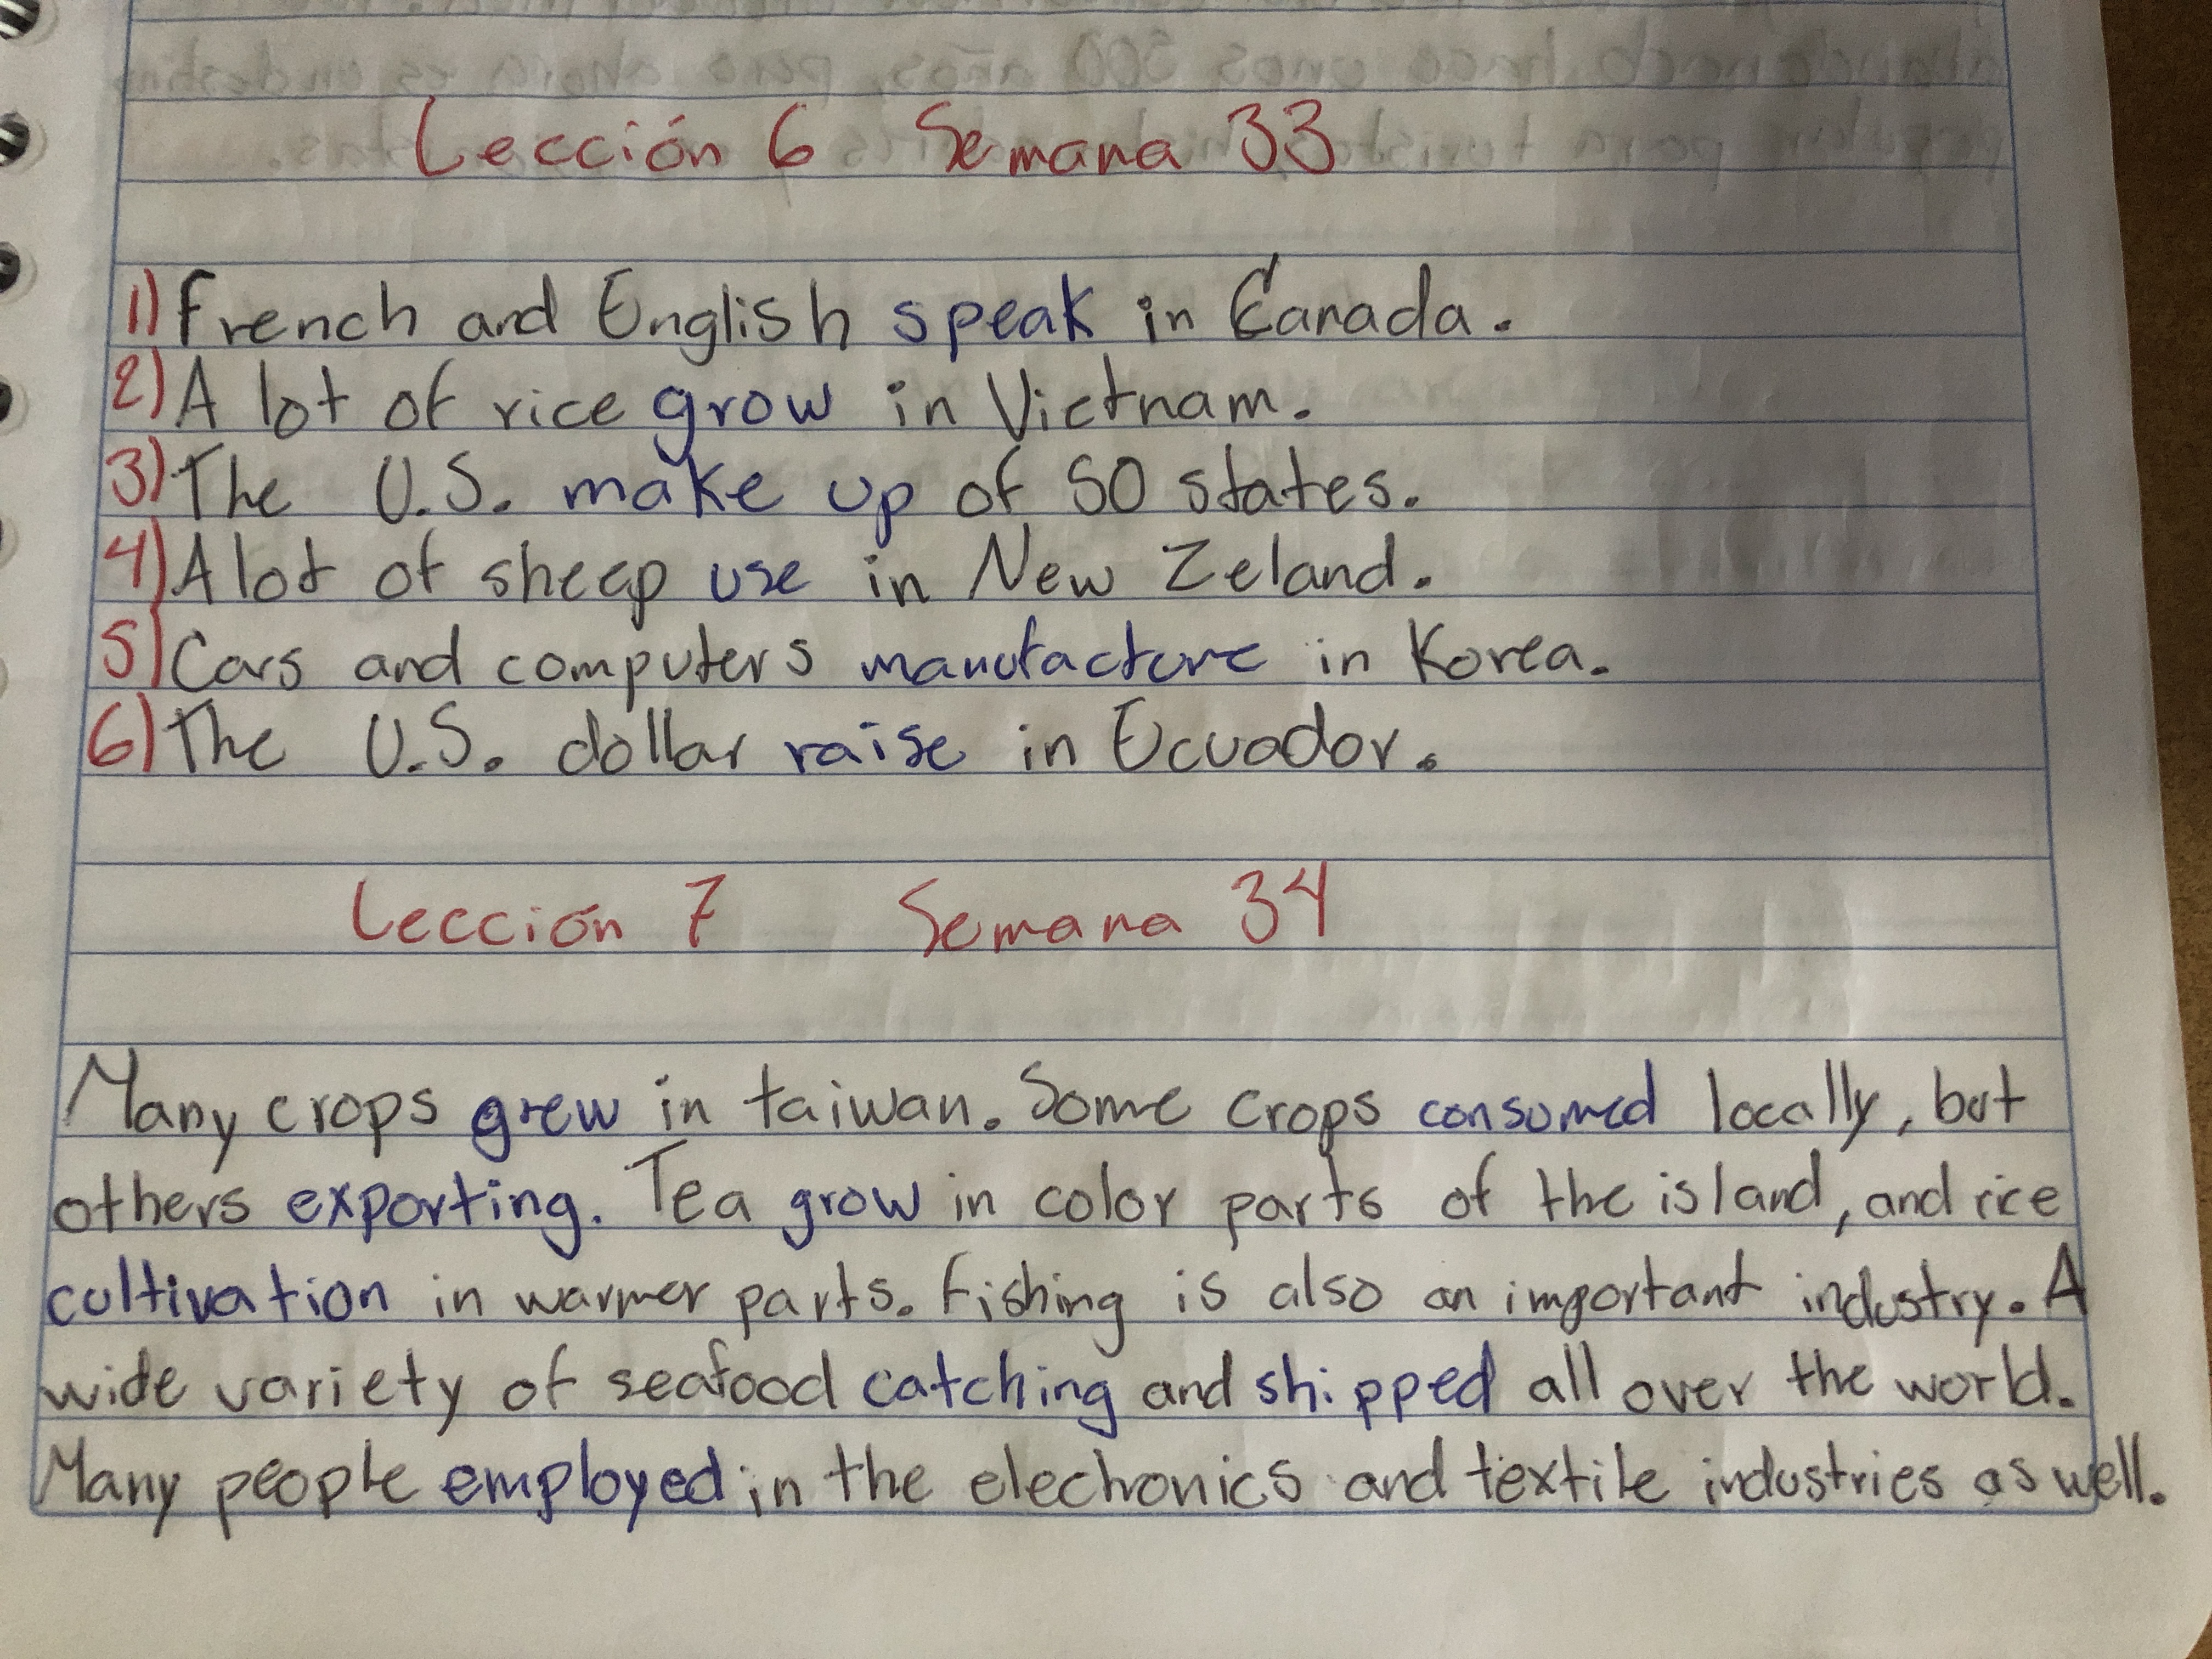 Lección 6 Semana 33
1) French and English speak in Canada.
2) A lot of rice grow in Vietnam.
3) The U.S. make up of 50 states.
4) A lot of sheep use in New Zeland.
5) Cars and computers manufacture in Korea.
6) The U.S. dollar raise in Ecuador.
Lección 7 Semana 34
Many crops grew in taiwan. Some crops consumed locally, but
others exporting. Tea grow in color parts of the island, and rice
cultivation in warmer parts. Fishing is also an important industry. A
wide variety of seafood catching and shipped all over the world.
Many people employed in the electronics and textile industries as well.